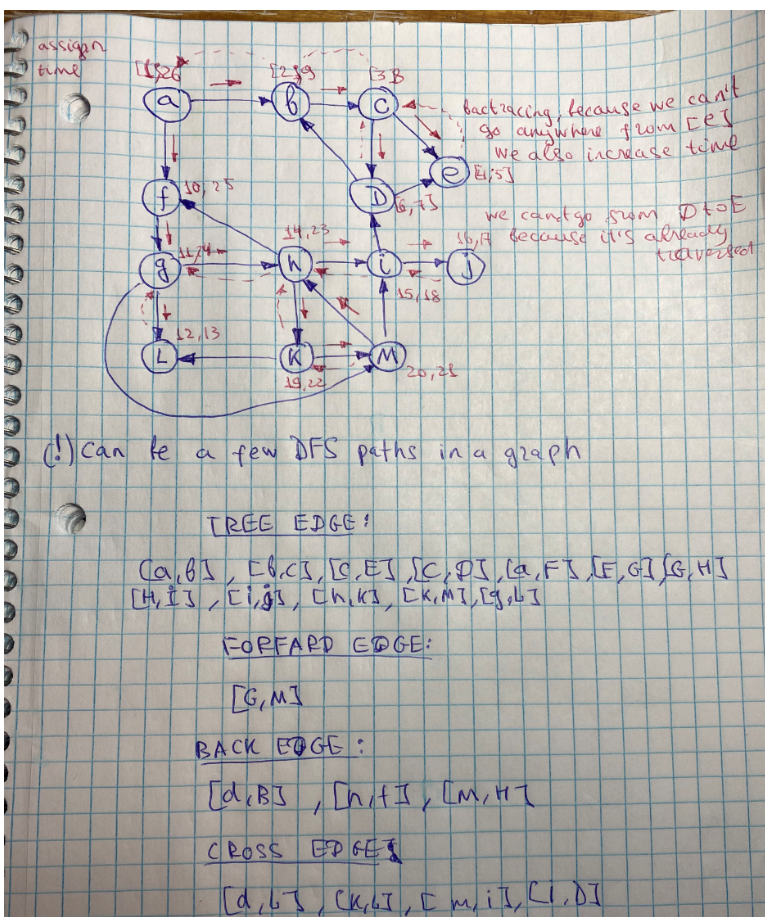 assign
time
[1,26
[2,9
[3,8
a
b
c
bactracing, because we can't
go anywhere from [e]
we also increase time
e
[4,5]
D
[6,7]
f
10,25
we can't go from D to E
because it's already
traversed
14,23
16,17
g
11,24
h
i
j
15,18
12,13
L
K
M
19,22
20,21
(!) can be a few DFS paths in a graph
TREE EDGE:
[a,b], [b,c], [c,E], [C,D], [a,F], [F,G] [G,H]
[H,I], [i,j], [h,K], [K,M], [g,L]
FORFARD EDGE:
[G,M]
BACK EDGE:
[d,B], [h,f], [M,H]
CROSS EDGES
[d,L], [K,L], [m,i], [i,D]